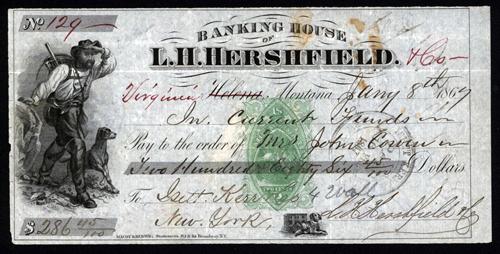 No 129
BANKING HOUSE
OF
L.H. HERSHFIELD. & Co
Virginia Helena, Montana, Jany 8th 1867
In Current Funds
Pay to the order of Mrs John Cowan
Two Hundred Eighty Six 45/100 Dollars
To Isett Kerr & Co 4 Wall
New York,
$ 286 45/100
L.H. Hershfield & Co